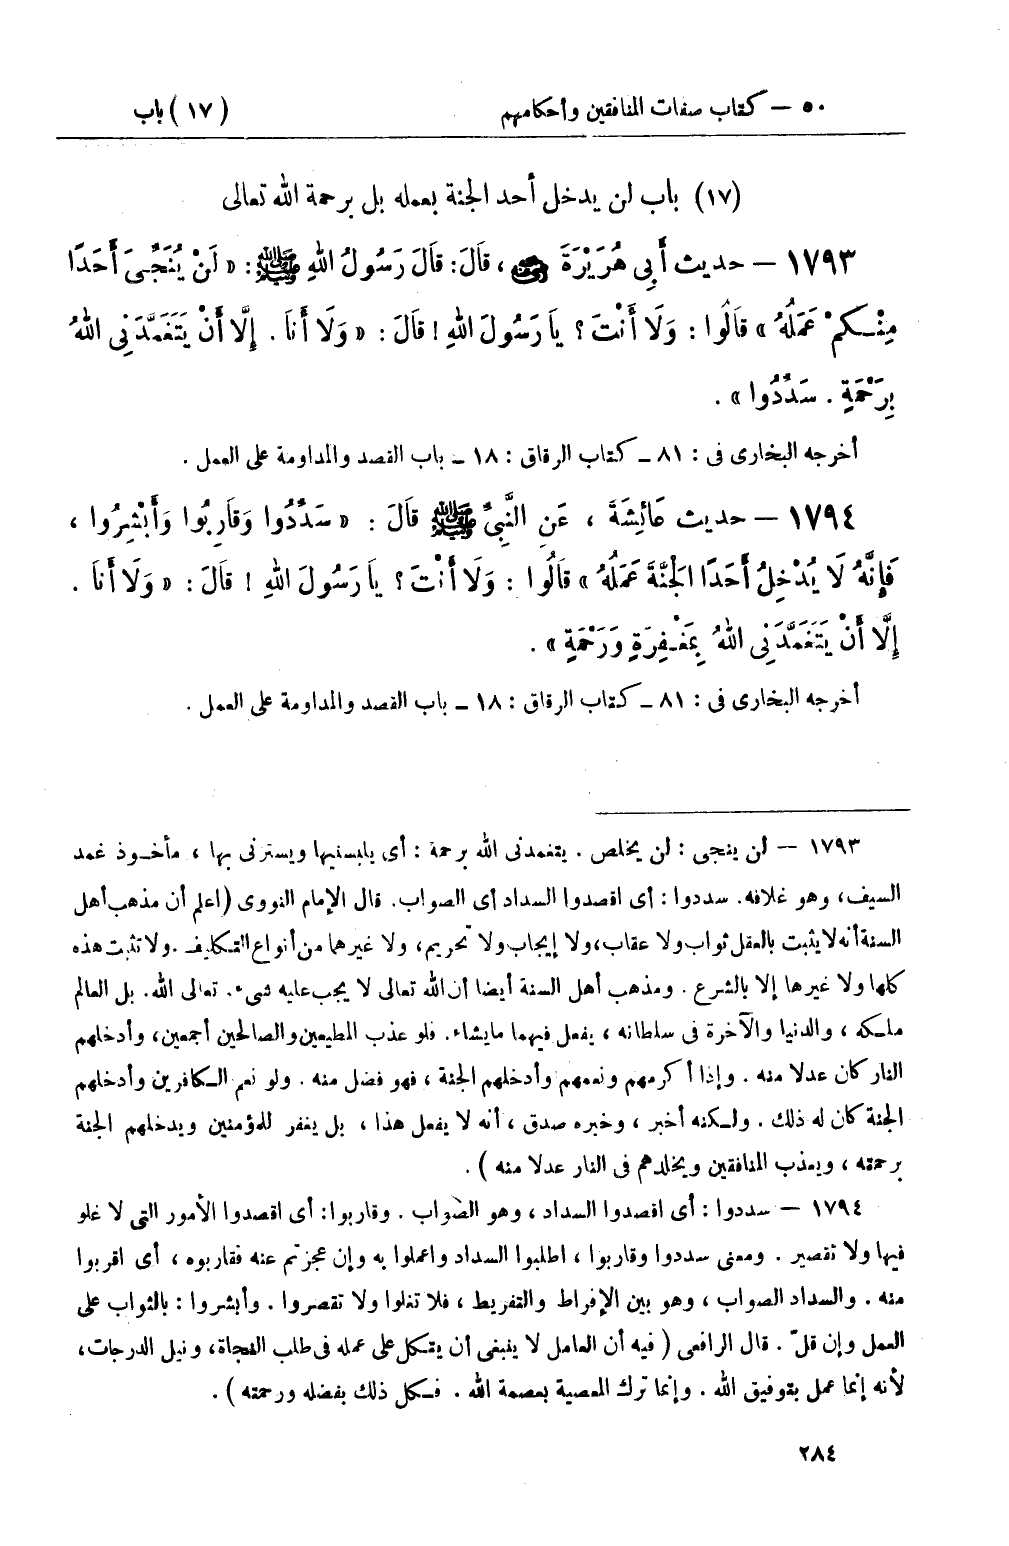 ٥٠ — كتاب صفات المنافقين وأحكامهم (١٧) باب
(١٧) باب لن يدخل أحد الجنة بعمله بل برحمة الله تعالى
١٧٩٣ — حديث أَبِي هُرَيْرَةَ رضي الله عنه، قَالَ: قَالَ رَسُولُ اللهِ ﷺ: « لَنْ يُنَجِّىَ أَحَدًا
مِنْكُمْ عَمَلُهُ » قَالُوا : وَلَا أَنْتَ ؟ يَا رَسُولَ اللهِ ! قَالَ : « وَلَا أَنَا . إِلَّا أَنْ يَتَغَمَّدَنِى اللهُ
بِرَحْمَةٍ . سَدِّدُوا » .
أخرجه البخارى فى : ٨١ ـ كتاب الرقاق : ١٨ ـ باب القصد والمداومة على العمل .
١٧٩٤ — حديث عَائِشَةَ ، عَنِ النَّبِىِّ ﷺ قَالَ : « سَدِّدُوا وَقَارِبُوا وَأَبْشِرُوا ،
فَإِنَّهُ لَا يُدْخِلُ أَحَدًا الْجَنَّةَ عَمَلُهُ » قَالُوا : وَلَا أَنْتَ ؟ يَا رَسُولَ اللهِ ! قَالَ : « وَلَا أَنَا .
إِلَّا أَنْ يَتَغَمَّدَنِى اللهُ بِمَغْفِرَةٍ وَرَحْمَةٍ » .
أخرجه البخارى فى : ٨١ ـ كتاب الرقاق : ١٨ ـ باب القصد والمداومة على العمل .
١٧٩٣ — لن ينجى : لن يخلص . يتغمدنى الله برحمة : أى يلبسنيها ويسترنى بها ، مأخوذ غمد
السيف، وهو غلافه. سددوا : أى اقصدوا السداد أى الصواب. قال الإمام النووى (اعلم أن مذهب أهل
السنة أنه لا يثبت بالعقل ثواب ولا عقاب،ولا إيجاب ولا تحريم، ولا غيرهما من أنواع التكليف .ولا تثبت هذه
كلها ولا غيرها إلا بالشرع . ومذهب أهل السنة أيضا أن الله تعالى لا يجب عليه شىء. تعالى الله. بل العالم
ملكه ، والدنيا والآخرة فى سلطانه ، يفعل فيهما مايشاء. فلو عذب المطيعين والصالحين أجمعين، وأدخلهم
النار كان عدلا منه . وإذا أكرمهم ونعمهم وأدخلهم الجنة ، فهو فضل منه . ولو نعم الكافرين وأدخلهم
الجنة كان له ذلك . ولكنه أخبر ، وخبره صدق ، أنه لا يفعل هذا ، بل يغفر للمؤمنين ويدخلهم الجنة
برحمته ، ويعذب المنافقين ويخلدهم فى النار عدلا منه ) .
١٧٩٤ — سددوا : أى اقصدوا السداد ، وهو الصواب . وقاربوا: أى اقصدوا الأمور التى لا غلو
فيها ولا تقصير . ومعنى سددوا وقاربوا ، اطلبوا السداد واعملوا به وإن عجزتم عنه فقاربوه ، أى اقربوا
منه . والسداد الصواب ، وهو بين الإفراط والتفريط ، فلا تغلوا ولا تقصروا . وأبشروا : بالثواب على
العمل وإن قلّ . قال الرافعى ( فيه أن العامل لا ينبغى أن يتكل على عمله فى طلب النجاة، ونيل الدرجات،
لأنه إنما عمل بتوفيق الله . وإنما ترك المعصية بعصمة الله . فكل ذلك بفضله ورحمته ) .
٢٨٤